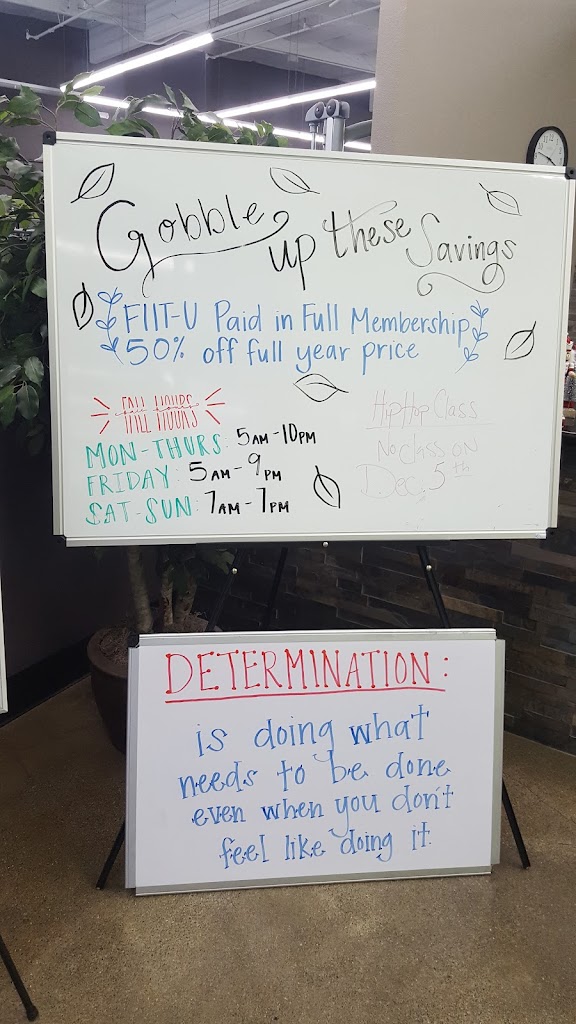 Gobble up these Savings
FIIT-U Paid in Full Membership
50% off full year price
FALL HOURS
MON-THURS: 5AM-10PM
FRIDAY: 5AM-9PM
SAT-SUN: 7AM-7PM
HipHop Class
No class on
Dec, 5th
DETERMINATION:
is doing what
needs to be done
even when you don't
feel like doing it.